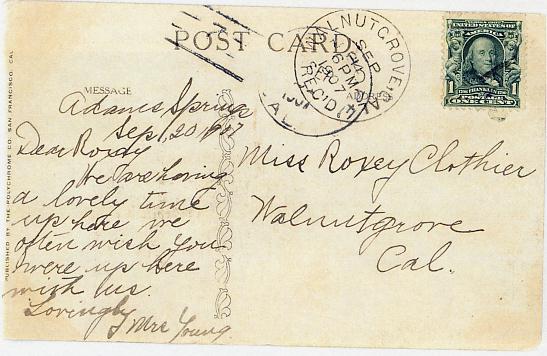 POST CARD
WALNUTGROVE, CAL.
SEP
6 PM
1907
REC'D
1
ONE CENT
MESSAGE
ADDRESS
Adams Springs
Sep, 20 1907
Dear Roxey
We are having
a lovely time
up here we
often wish you
were up here
with us.
Lovingly
Mrs Young.
Miss Roxey Clothier
Walnutgrove
Cal.
PUBLISHED BY THE POLYCHROME CO. SAN FRANCISCO, CAL